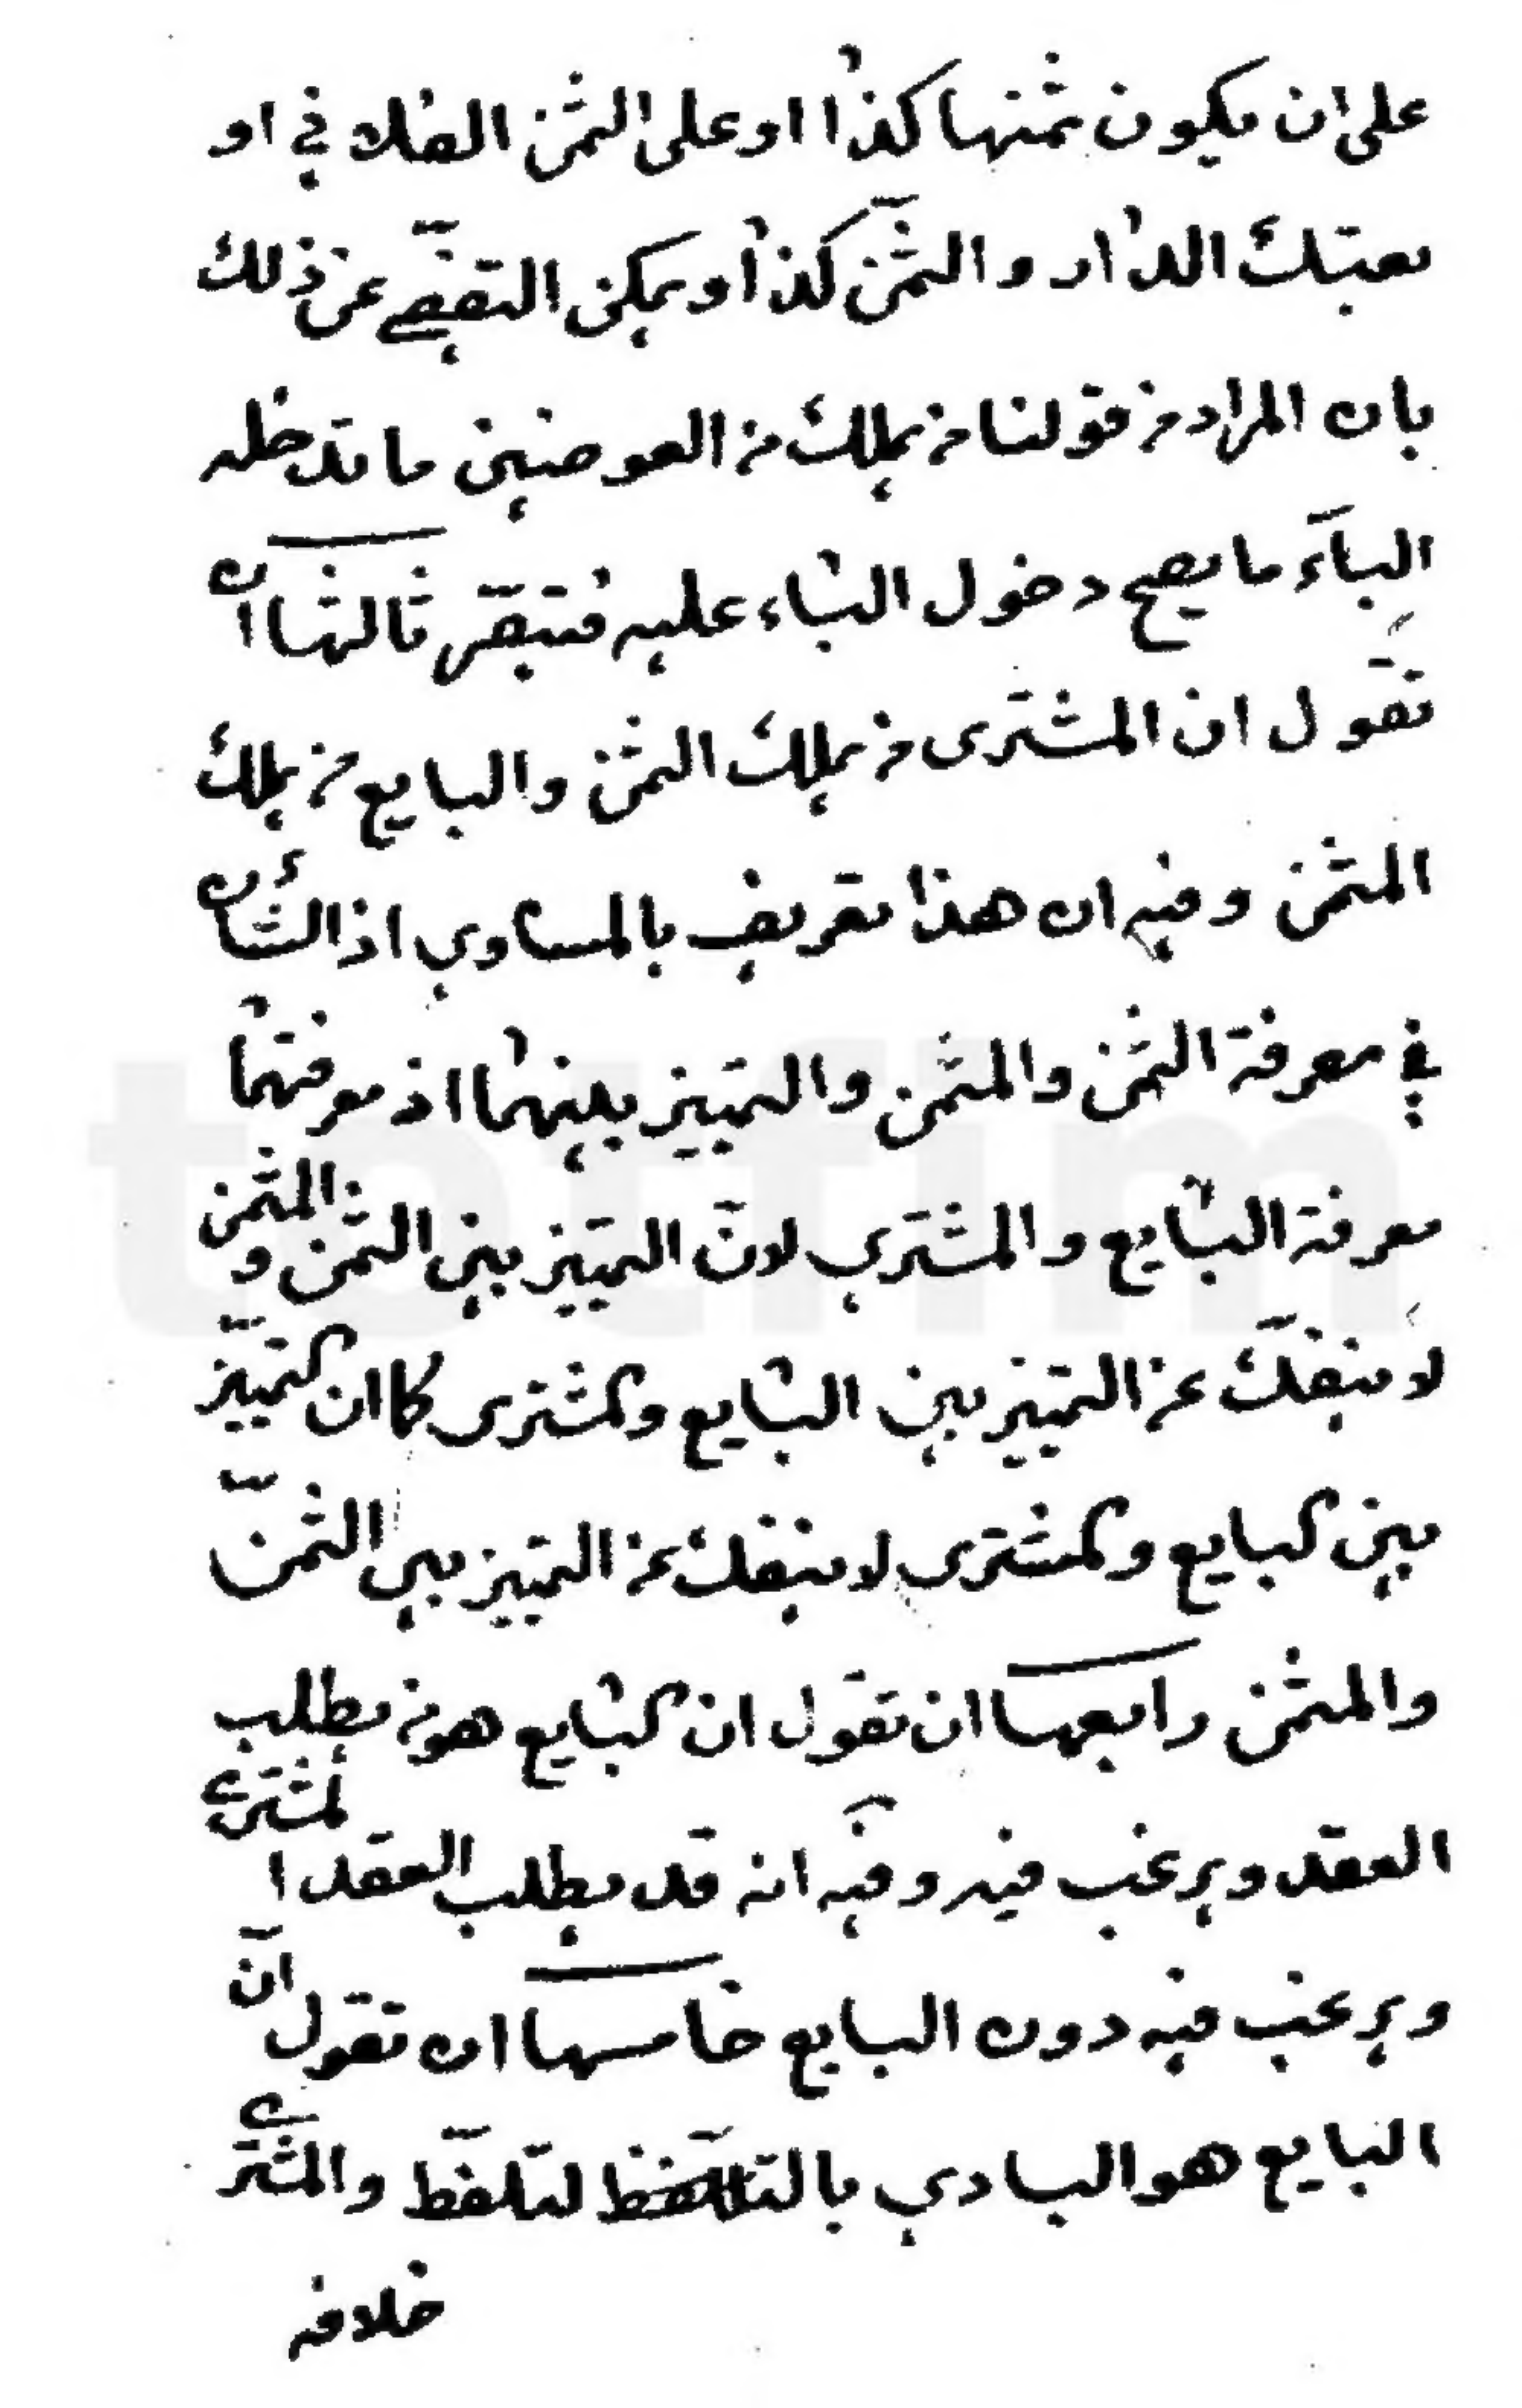 على ان يكون ثمنها كذا او على الثمن الفلاني او
بعتك الدار والثمن كذا ويمكن التفصي عن ذلك
بان المراد من قولنا من يملك من العوضين ما تدخله
الباء ما يصح دخول الباء عليه فتبصّر ثالثها ان
تقول ان المشترى من يملك الثمن والبايع من يملك
المثمن وفيه ان هذا تعريف بالمساوي اذ الشأن
في معرفة الثمن والمثمن والتمييز بينهما اذ معرفتهما
معرفة البايع والمشتري لانّ التمييز بين الثمن والمثمن
لا ينفكّ عن التمييز بين البايع والمشترى كما ان التمييز
بين البايع والمشترى لا ينفك عن التمييز بين الثمن
والمثمن رابعها ان تقول ان البايع هو من يطلب
العقد ويرغب فيه وفيه انه قد يطلب العقد المشترى
ويرغب فيه دون البايع خامسها ان تقول انّ
البايع هو البادي بالتلفظ لتلفّظ والمشتري
خلافه
totfim